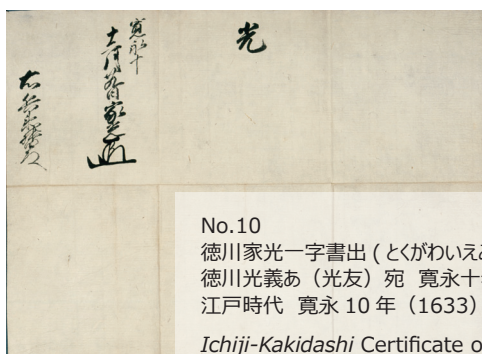 光
寛永十
家光
No.10
徳川家光一字書出 ( とくがわいえ
徳川光義あ（光友）宛 寛永十
江戸時代 寛永 10 年（1633）
Ichiji-Kakidashi Certificate o